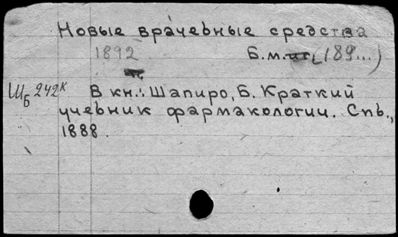 Новые врачебные средства
1892 Б.м. (189...)
Шб 242к В кн.: Шапиро, Б. Краткий
учебник фармакологии. Спб.,
1888.